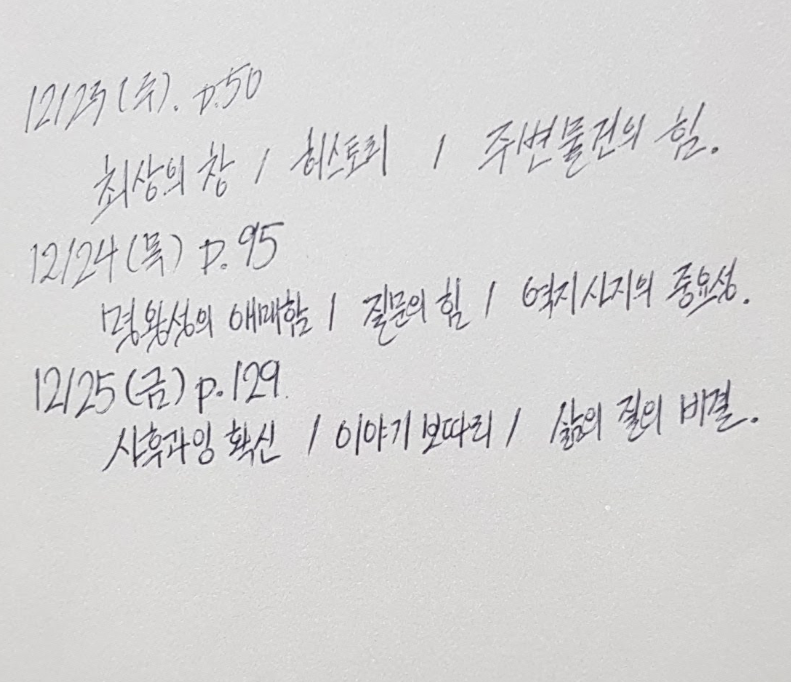 12/23(수). p.50
최상의 창 / 히스토리 / 주변물건의 힘.
12/24(목) p.95
명왕성의 애매함 / 질문의 힘 / 역지사지의 중요성.
12/25(금) p.129
사후과잉 확신 / 이야기 보따리 / 삶의 질의 비결.